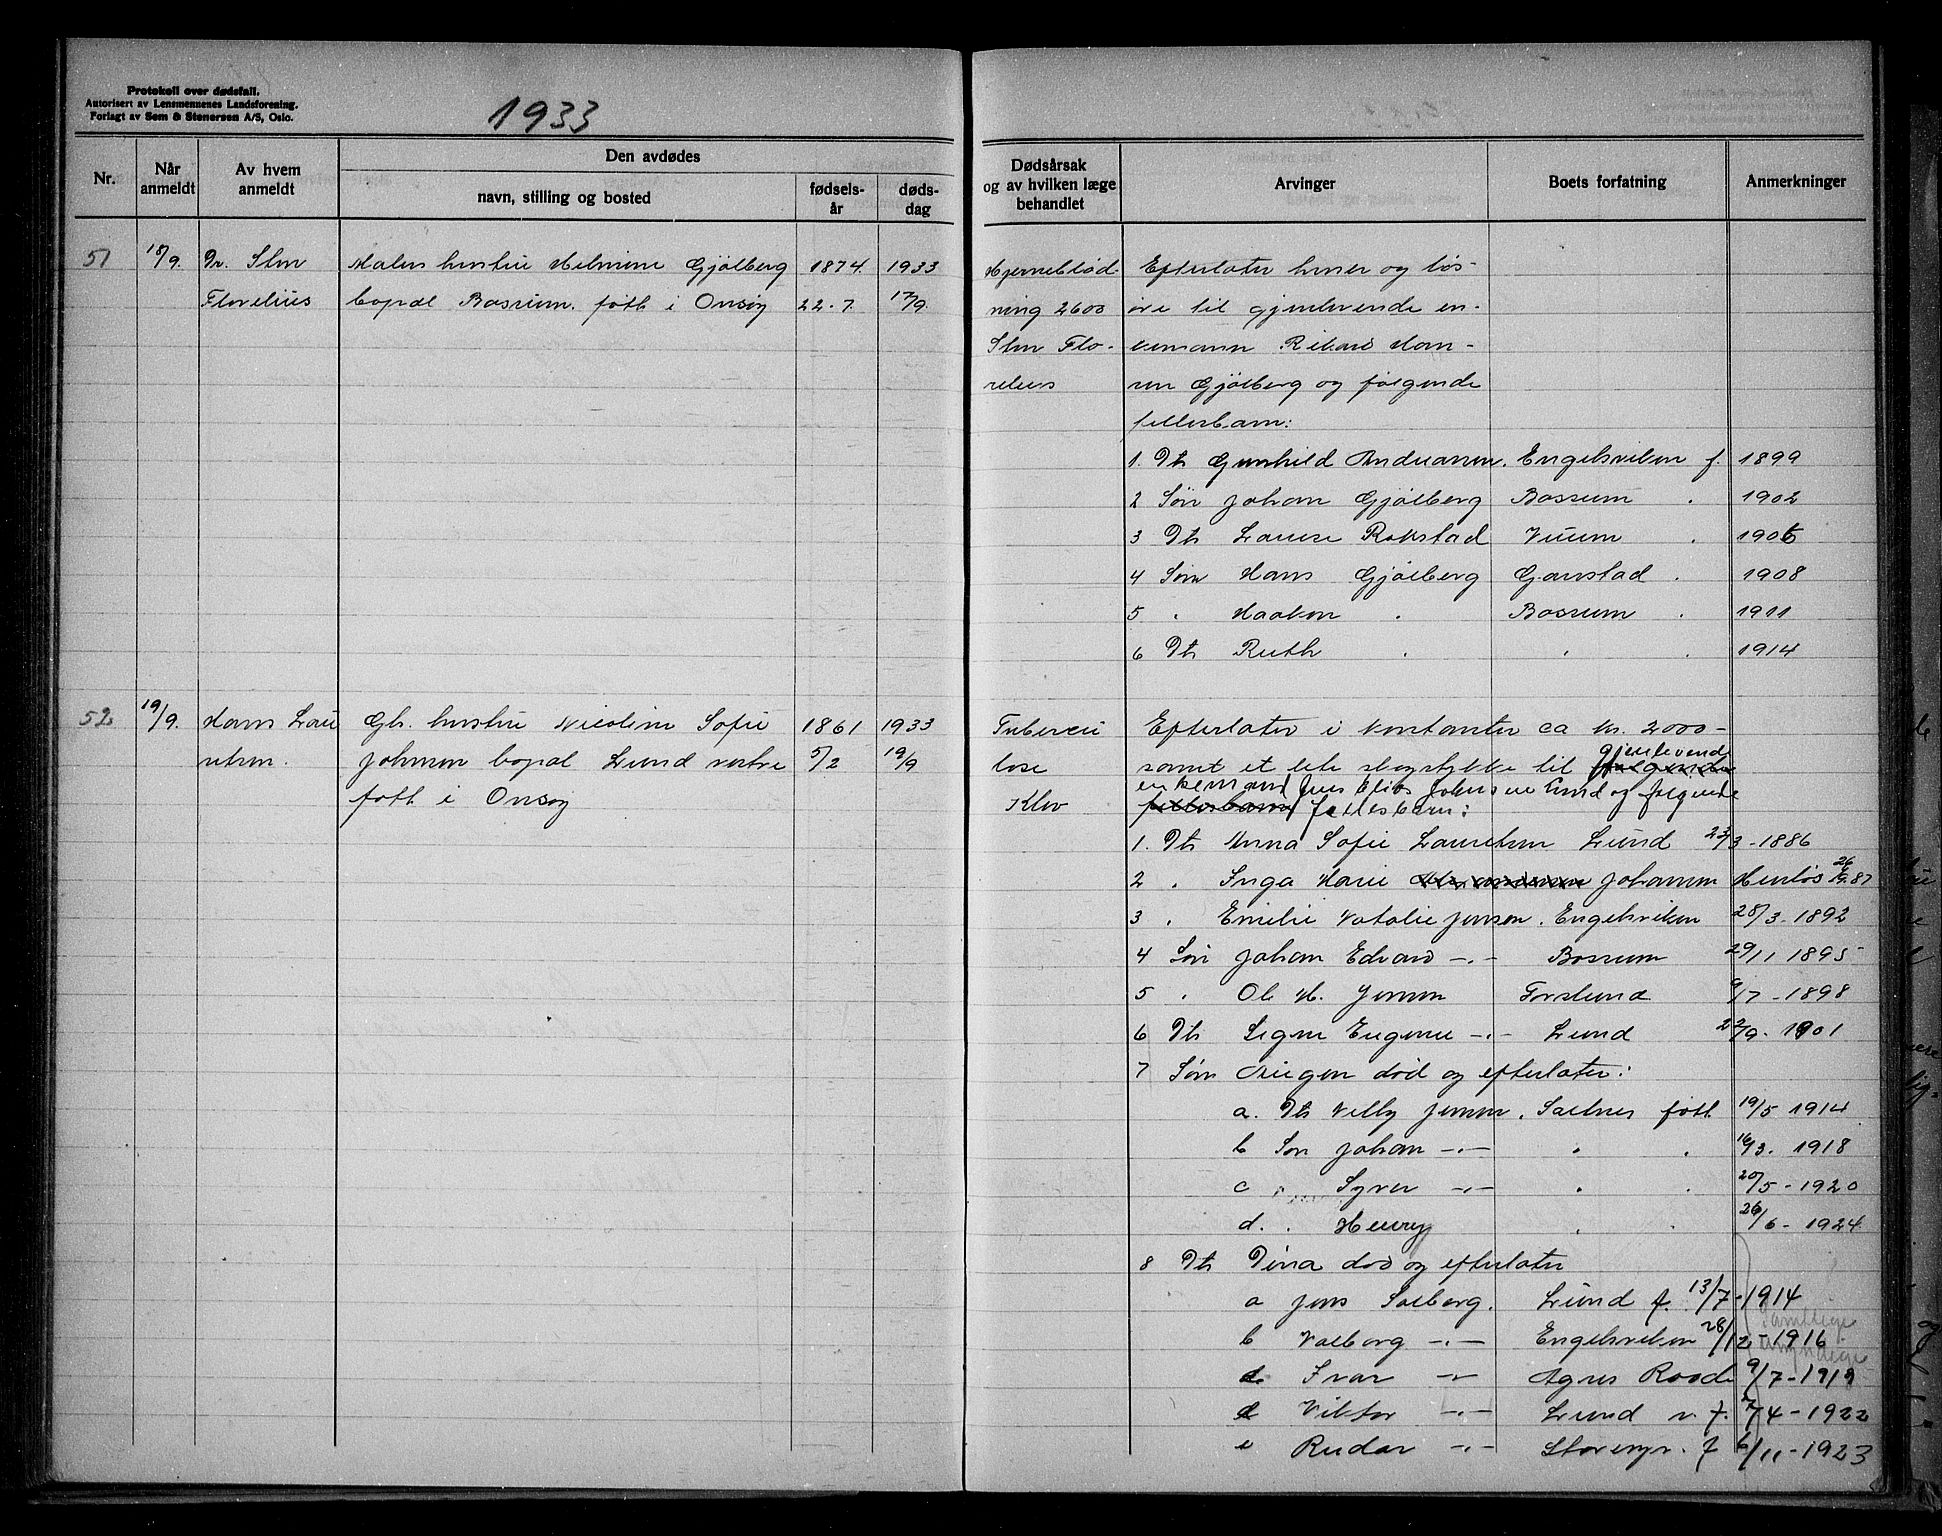 Protokoll over dødsfall.
Autorisert av Lensmennenes Landsforening.
Forlagt av Sem & Stenersen A/S, Oslo.
1933
Nr.
Når anmeldt
Av hvem anmeldt
Den avdødes
navn, stilling og bosted
fødsels-år
døds-dag
Dødsårsak og av hvilken læge behandlet
Arvinger
Boets forfatning
Anmerkninger
51 18/9. Dr. Sten Malers hustru Helmine Gjølberg 1874. 1933
Florelius bopæl Bossum. født i Onsøy 22-7. 17/9.
Hjerneblød-
ning 2600
Sten Flo-
relius
Efterlater huser og løs-
øre til gjenlevende en-
kemann Rikard Han-
sen Gjølberg og følgende
fellesbarn:
1. Dtr Gunhild Andreassen. Engelsviken f. 1899
2 Søn Johan Gjølberg Bossum . 1902
3 Dtr Laura Rokstad Viium . 1905
4 Søn Hans Gjølberg Gaustad . 1908
5 " Haakon " Bossum . 1911
6 Dtr Ruth " " . 1914
52 19/9. Hans Lau Gh. hustru Nicoline Sofie 1861 1933
ritsen. Johnsen bopæl Lund vestre 5/2 19/9
født i Onsøy
Tubercu
lose
Kløv
Efterlater i kontanter ca kr. 2000-
samt et lite skogstykke til gjenlevende
enkemand Jens Elias Johnsen Lund og følgende
fellesbarn:
1. Dtr Anna Sofie Lauritsen Lund 23/3-1886
2 " Inga Marie Johansen Henløs 26 87
3 " Emilie Natalie Jensen. Engelsviken 28/3-1892
4 Søn Johan Edvard -"- Bossum 29/11 1895
5 " Ole H. Jensen Torslund 9/7-1898
6 Dtr Signe Eugenie -"- Lund 22/9-1901
7 Søn død og efterlater:
a. Dtr Villy Jensen. Saltnes født 19/5-1914
b Søn Johan -"- " . 16/3. 1918
c " Syver -"- " . 20/5-1920
d. " Henry " . 26/6-1924
8 Dtr Dina død og efterlater
a Jens Solberg. Lund f. 13/7-1914
b Valborg -"- Engelsviken 28/12-1916
Samtlige
umyndige
c Ivar -"- Agnes Raade 9/7-1919
d Viktor -"- Lund v. f. 7/4-1922
e Rudar -"- f 6/11-1923